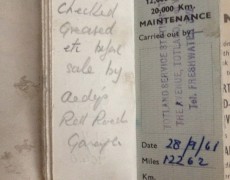 Checked
Greased
at before
sale by
Andy's
Red Road
Garage
20,000 Km.
MAINTENANCE
Carried out by:—
TOTLAND SERVICE STN
THE AVENUE, TOTLAND
Tel. FRESHWATER
Date 28/9/61
Miles 12262
Km.